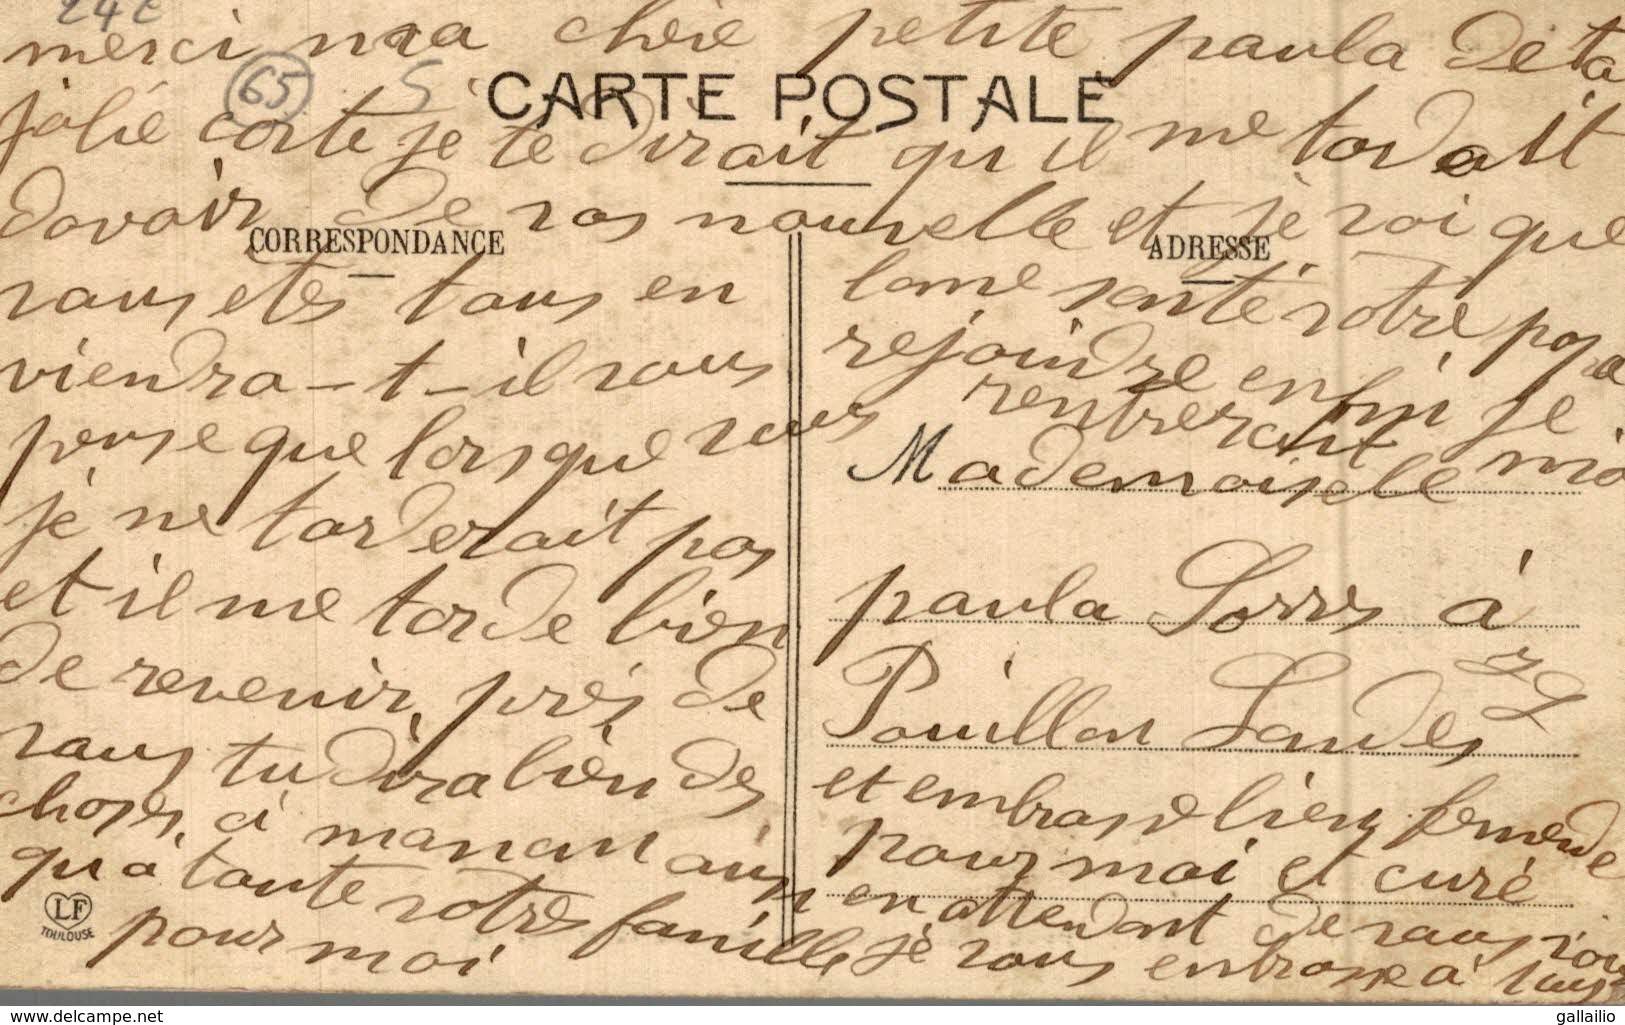 24 c
merci ma chère petite paula de ta
65 S
CARTE POSTALE
jolie carte je te dirait qu il me tardait
davoir de vos nouvelle et je voi que
CORRESPONDANCE
ADRESSE
vous etes tous en bonne santé votre papa
viendra-t-il vous rejoindre enfin je
pense que lorsque vous rentrerait moi
je ne tarderait pas
et il me tarde bien
de revenir près de
vous tu dira bien des
choses à maman ainsi
qu'à toute votre famille
pour moi
Mademoiselle
paula Sorres à
Pouillon Landes
et embrasse bien
pour moi et curé
en attendant de vous
je vous embrasse à tous
LF
TOULOUSE
www.delcampe.net
gallailio